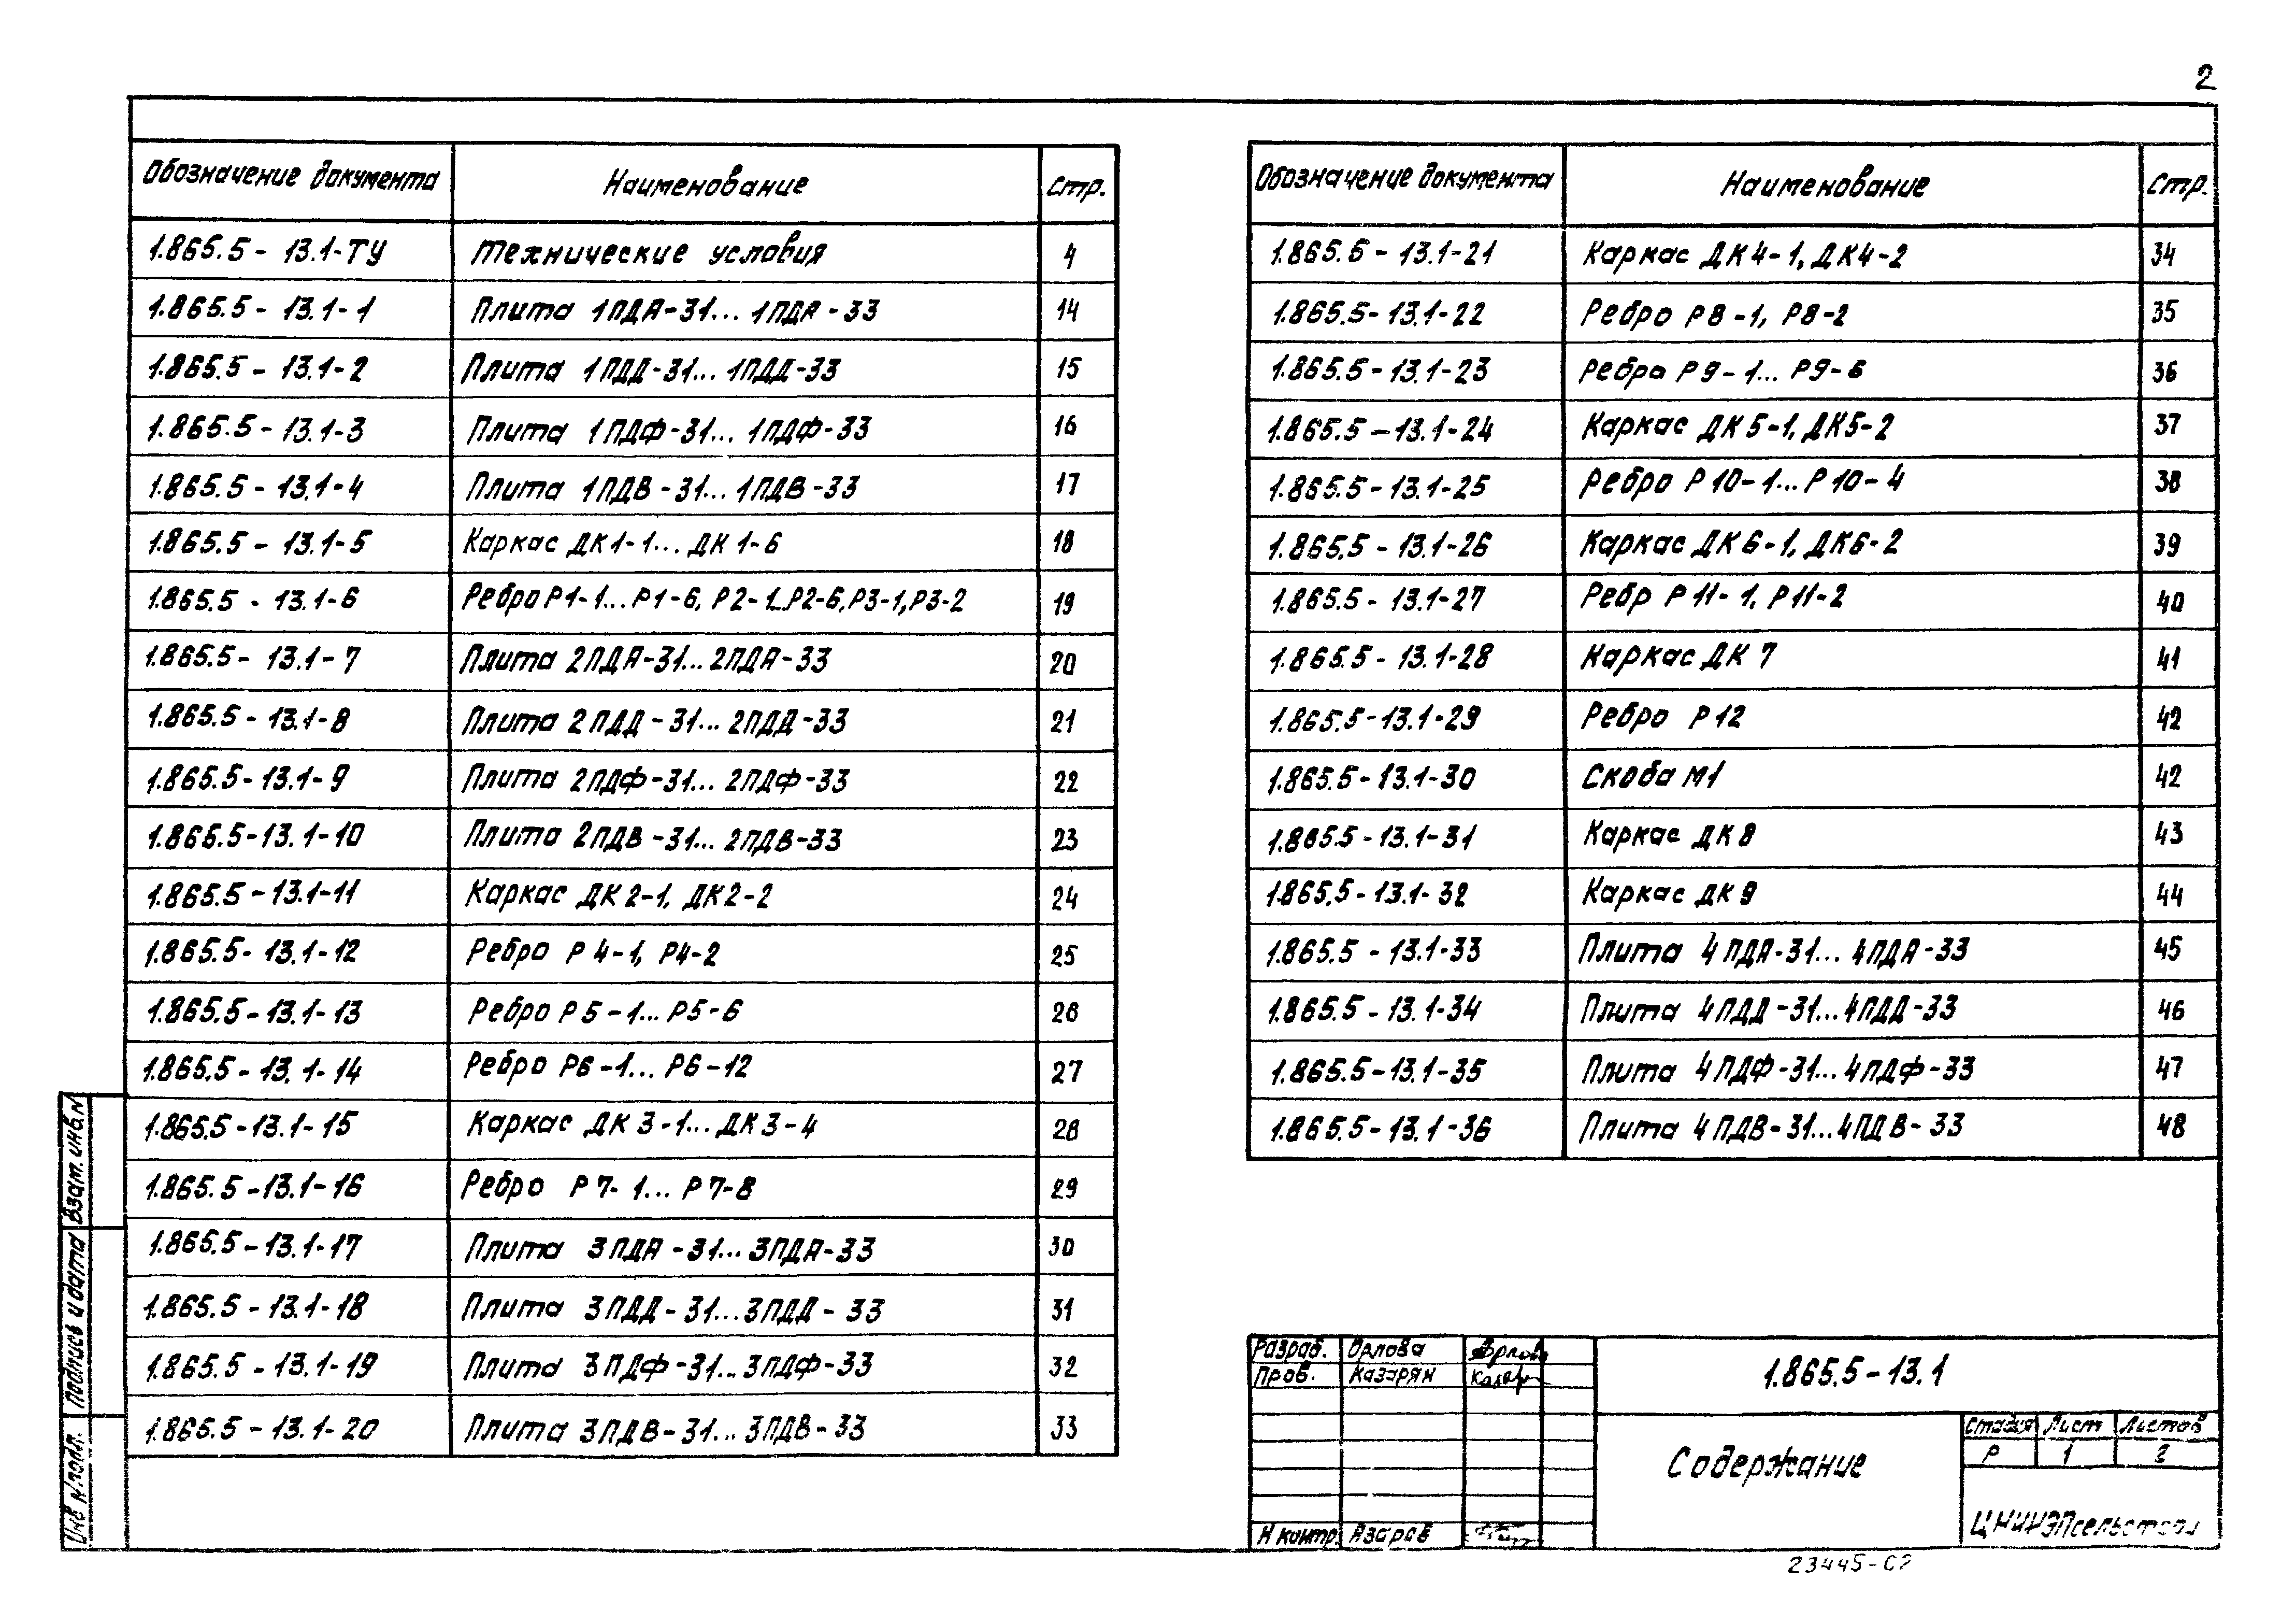 2
Обозначение документа Наименование Стр.
1.865.5-13.1-ТУ Технические условия 4
1.865.5-13.1-1 Плита 1ПДА-31...1ПДА-33 14
1.865.5-13.1-2 Плита 1ПДД-31...1ПДД-33 15
1.865.5-13.1-3 Плита 1ПДФ-31...1ПДФ-33 16
1.865.5-13.1-4 Плита 1ПДВ-31...1ПДВ-33 17
1.865.5-13.1-5 Каркас ДК1-1...ДК1-6 18
1.865.5-13.1-6 Ребро Р1-1...Р1-6, Р2-1...Р2-6, Р3-1, Р3-2 19
1.865.5-13.1-7 Плита 2ПДА-31...2ПДА-33 20
1.865.5-13.1-8 Плита 2ПДД-31...2ПДД-33 21
1.865.5-13.1-9 Плита 2ПДФ-31...2ПДФ-33 22
1.865.5-13.1-10 Плита 2ПДВ-31...2ПДВ-33 23
1.865.5-13.1-11 Каркас ДК2-1, ДК2-2 24
1.865.5-13.1-12 Ребро Р4-1, Р4-2 25
1.865.5-13.1-13 Ребро Р5-1...Р5-6 26
1.865.5-13.1-14 Ребро Р6-1...Р6-12 27
1.865.5-13.1-15 Каркас ДК3-1...ДК3-4 28
1.865.5-13.1-16 Ребро Р7-1...Р7-8 29
1.865.5-13.1-17 Плита 3ПДА-31...3ПДА-33 30
1.865.5-13.1-18 Плита 3ПДД-31...3ПДД-33 31
1.865.5-13.1-19 Плита 3ПДФ-31...3ПДФ-33 32
1.865.5-13.1-20 Плита 3ПДВ-31...3ПДВ-33 33
Обозначение документа Наименование Стр.
1.865.5-13.1-21 Каркас ДК4-1, ДК4-2 34
1.865.5-13.1-22 Ребро Р8-1, Р8-2 35
1.865.5-13.1-23 Ребро Р9-1...Р9-6 36
1.865.5-13.1-24 Каркас ДК5-1, ДК5-2 37
1.865.5-13.1-25 Ребро Р10-1...Р10-4 38
1.865.5-13.1-26 Каркас ДК6-1, ДК6-2 39
1.865.5-13.1-27 Ребр Р11-1, Р11-2 40
1.865.5-13.1-28 Каркас ДК7 41
1.865.5-13.1-29 Ребро Р12 42
1.865.5-13.1-30 Скоба М1 42
1.865.5-13.1-31 Каркас ДК8 43
1.865.5-13.1-32 Каркас ДК9 44
1.865.5-13.1-33 Плита 4ПДА-31...4ПДА-33 45
1.865.5-13.1-34 Плита 4ПДД-31...4ПДД-33 46
1.865.5-13.1-35 Плита 4ПДФ-31...4ПДФ-33 47
1.865.5-13.1-36 Плита 4ПДВ-31...4ПДВ-33 48
Взам. инв. N
Подпись и дата
Инв N подл.
Разраб. Орлова Орлова
Пров. Казарян Казарян
Н контр. Азаров
1.865.5-13.1
Содержание
Стадия Лист Листов
Р 1 2
ЦНИИЭПсельстрой
23445-02